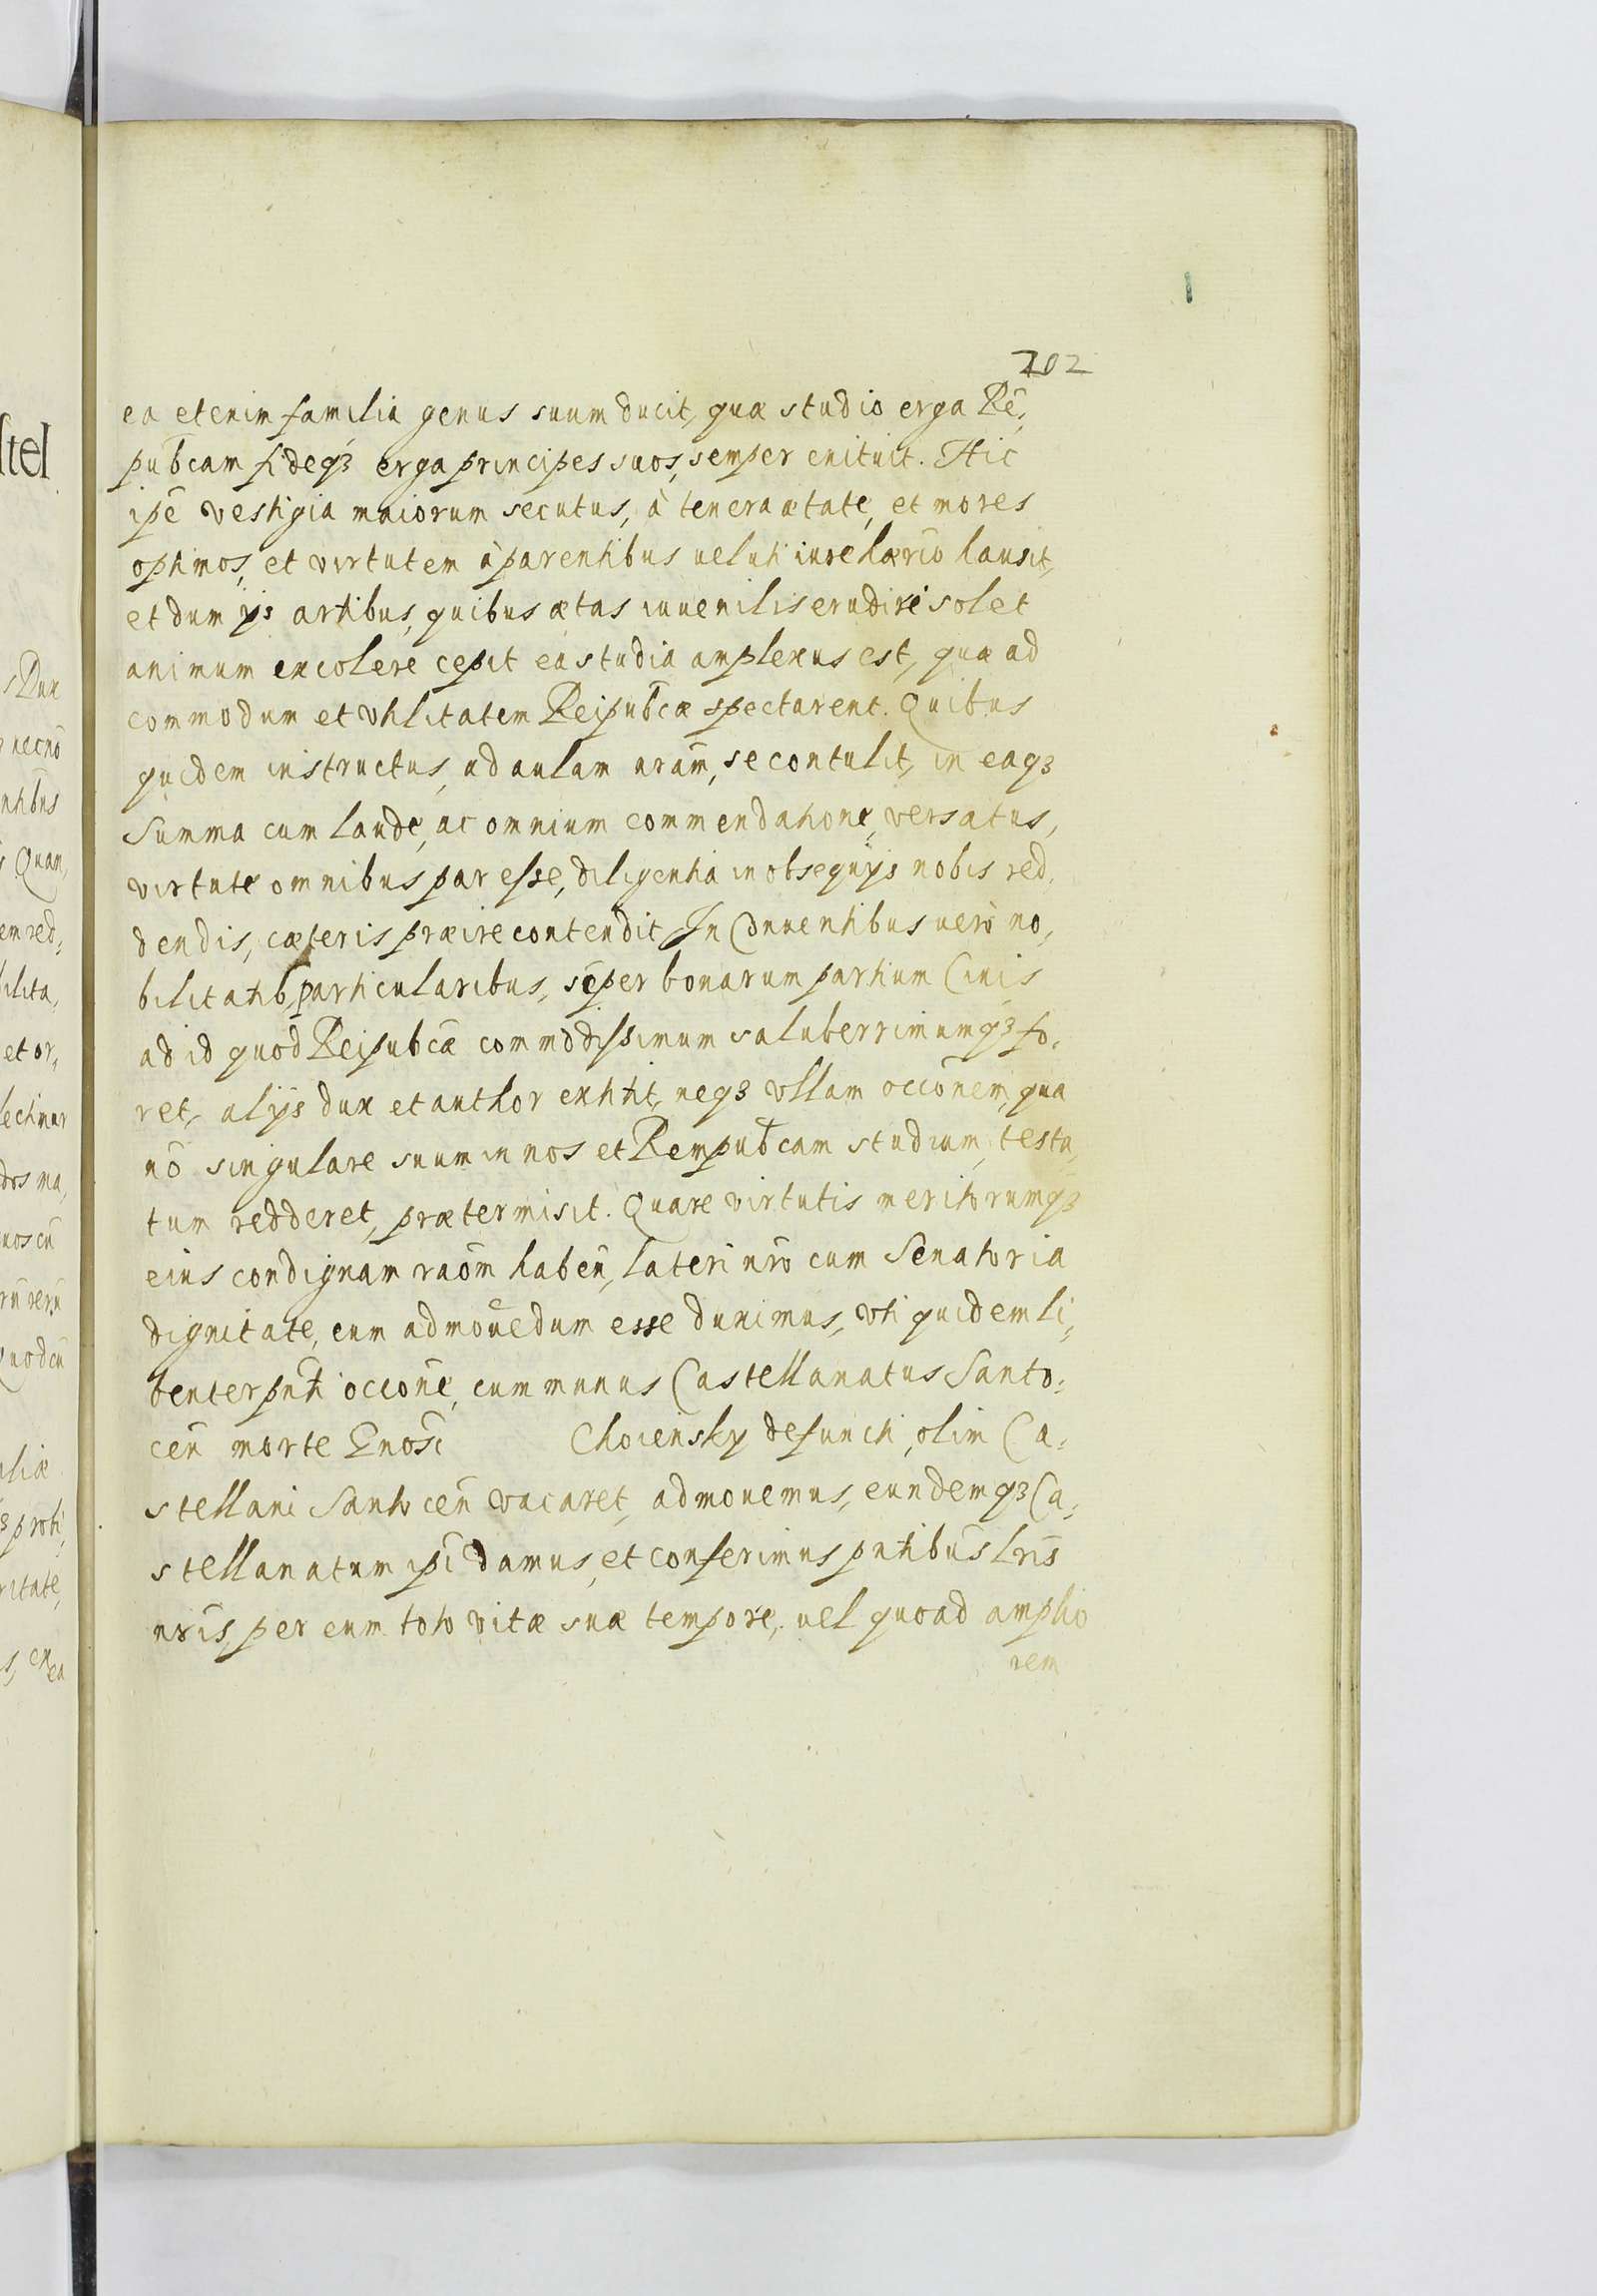 202
ea etenim familia genus suum ducit, quæ studio erga Rē,
pub̄cam fideq3 erga principes suos, semper enituit. Hic
ip̄e vestigia maiorum secutus, à tenera ætate, et mores
optimos, et virtutem à parentibus ueluti iure hærīo hausit,
et dum ijs artibus, quibus ætas iuuenilis erudiri solet
animum excolere cepit ea studia amplexus est, quæ ad
commodum et vtilitatem Reipub̄cæ spectarent. Quibus
quidem instructus, ad aulam nrām, se contulit, in eaq3
summa cum laude, ac omnium commendatione, versatus,
virtute omnibus par esse, diligentia in obsequijs nobis red,
dendis, cæteris præire contendit. In Conuentibus uerò no,
bilitatib, particularibus, sēper bonarum partium Ciuis
ad id quod Reipub̄cæ commodissimum saluberrimumq3 fo,
ret, alijs dux et author extitit, neq3 vllam occōnem, qua
nō singulare suum in nos et Rempub̄cam studium, testa,
tum redderet, prætermisit. Quare virtutis meritorumq3
eius condignam raōm habeñ, lateri nr̄o cum Senatoria
dignitate, eum admouēdum esse duximus, vti quidem li,
benter pn̄ti occōne, cum munus Castellanatus Santo,
ceñ morte Gnosi Choiensky defuncti, olim Ca,
stellani Santoceñ vacaret, admouemus, eundemq3 Ca,
stellanatum ip̄i damus, et conferimus pn̄tibus Lrīs
nr̄is, per eum toto vitæ suæ tempore, uel quoad amplio
rem
stel
s Dux
necnō
ntibus
Quam,
em red,
bilita,
et or,
nos cū
Quodcū
aliæ
ritate,
s, ex ea